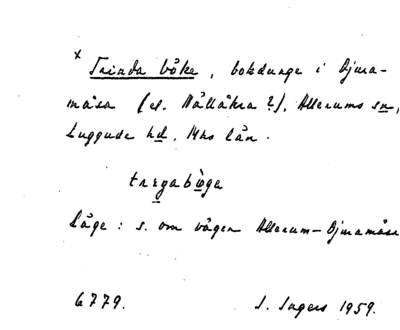 x Trinda böke, bokdunge i Djura-
måsa (el. Hällåkra ?), Allerums sn,
Luggude hd. Mhs län.
trıŋabøga
Läge: s. om vägen Allerum—Djuramåsa
6779. S. Ingers 1959.